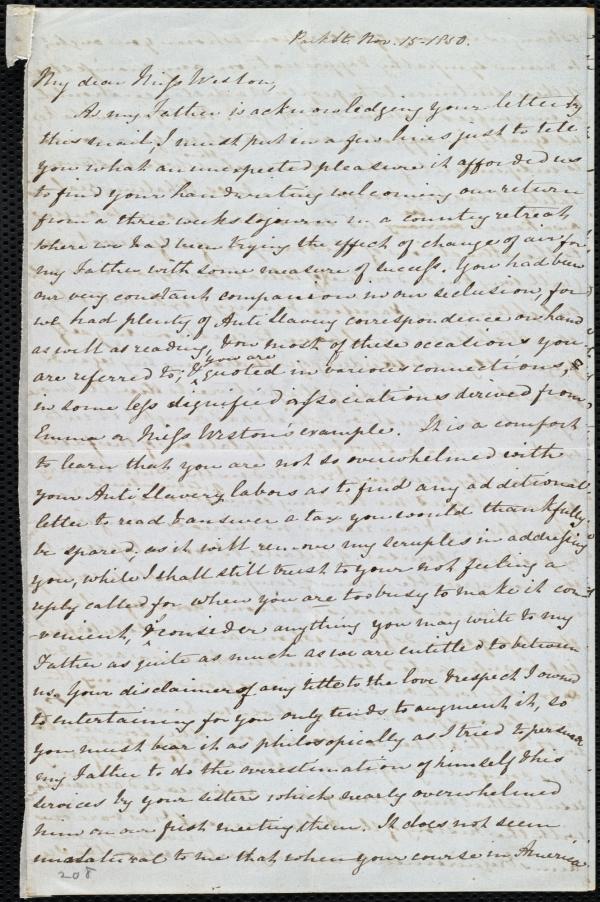 Park St. Nov. 15 - 1850.
My dear Miss Weston,
As my Father is acknowledging your letter by
this mail, I must put in a few lines just to tell
you what an unexpected pleasure it afforded us
to find your handwriting welcoming our return
from a three weeks sojourn in a country retreat,
where we had been trying the effect of change of air for
my Father with some measure of success. You had been
our very constant companion in our seclusion, for
we had plenty of Anti Slavery correspondence on hand
as well as reading, & on most of these occasions you
are referred to, & you are quoted in various connections, &
in some less dignified associations derived from
Emma or Miss Weston's example. It is a comfort
to learn that you are not so overwhelmed with
your Anti Slavery labors as to find any additional
letter to read & answer a tax you would thankfully
be spared, as it will remove my scruples in addressing
you, while I shall still trust to your not feeling a
reply called for when you are too busy to make it con
-venient, & consider anything you may write to my
Father as quite as much as we are entitled to between
us. Your disclaimer of any title to the love & respect I owned
to entertaining for you only tends to augment it, so
you must bear it as philosophically as I tried to persuade
my Father to do the overestimation of himself & his
services by your sisters which nearly overwhelmed
him on our first meeting them. It does not seem
unnatural to me that when your course in America
208